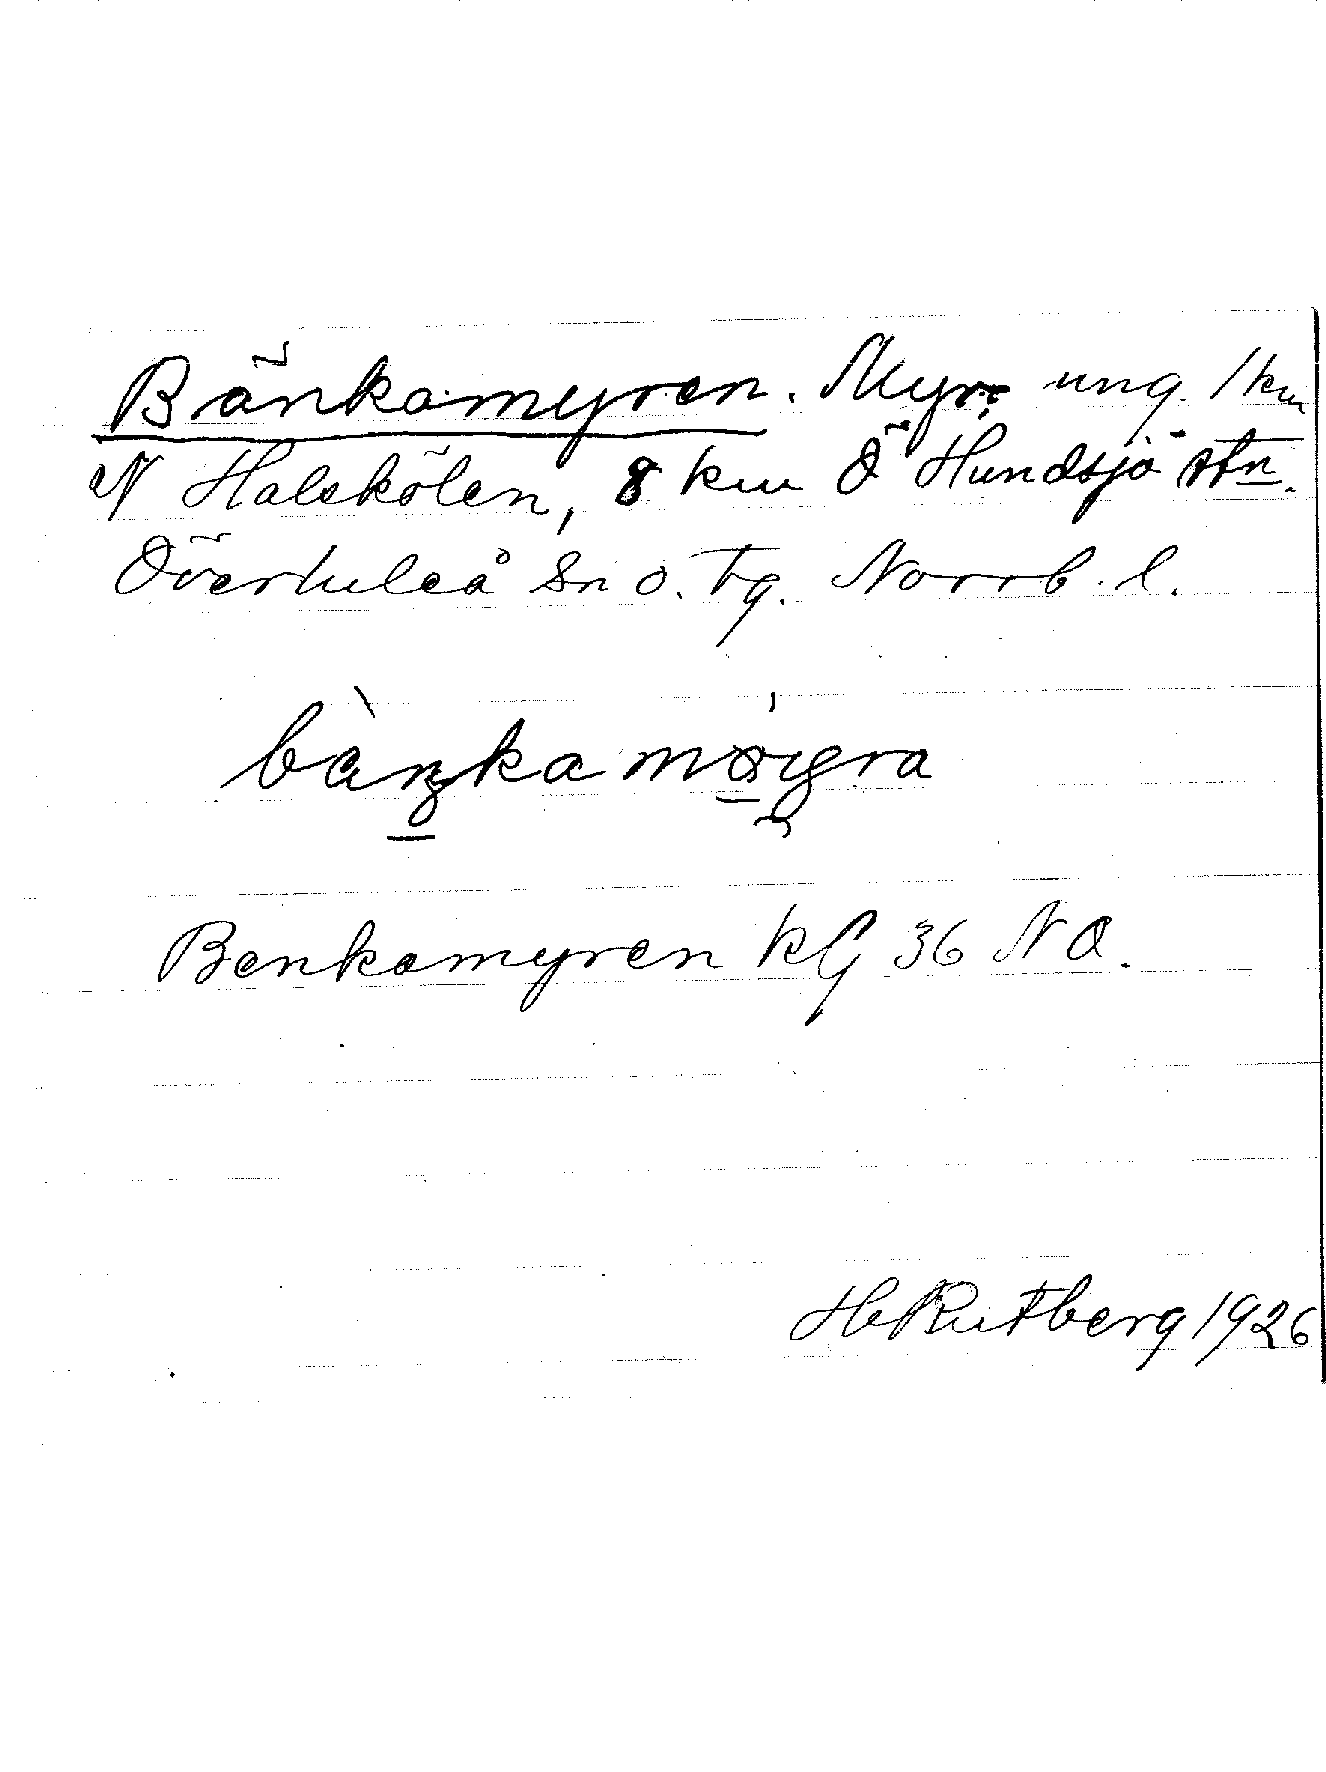 Bänkamyren. Myr, ung. 1 km
N Halskölen, 8 km Ö Hundsjö stn.
Överluleå sn o. tg. Norrb. l.
bàŋkamøyra
Benkamyren KG 36 NO.
H. Rutberg 1926